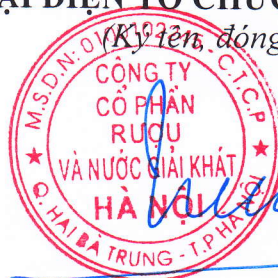 ẠI DIỆN TỔ CHỨC
(Ký tên, đóng
M.S.D.N: 0101 C.T.C.P
CÔNG TY
CỔ PHẦN
RƯỢU
VÀ NƯỚC GIẢI KHÁT
HÀ NỘI
Q. HAI BÀ TRƯNG - T.P HÀ NỘI